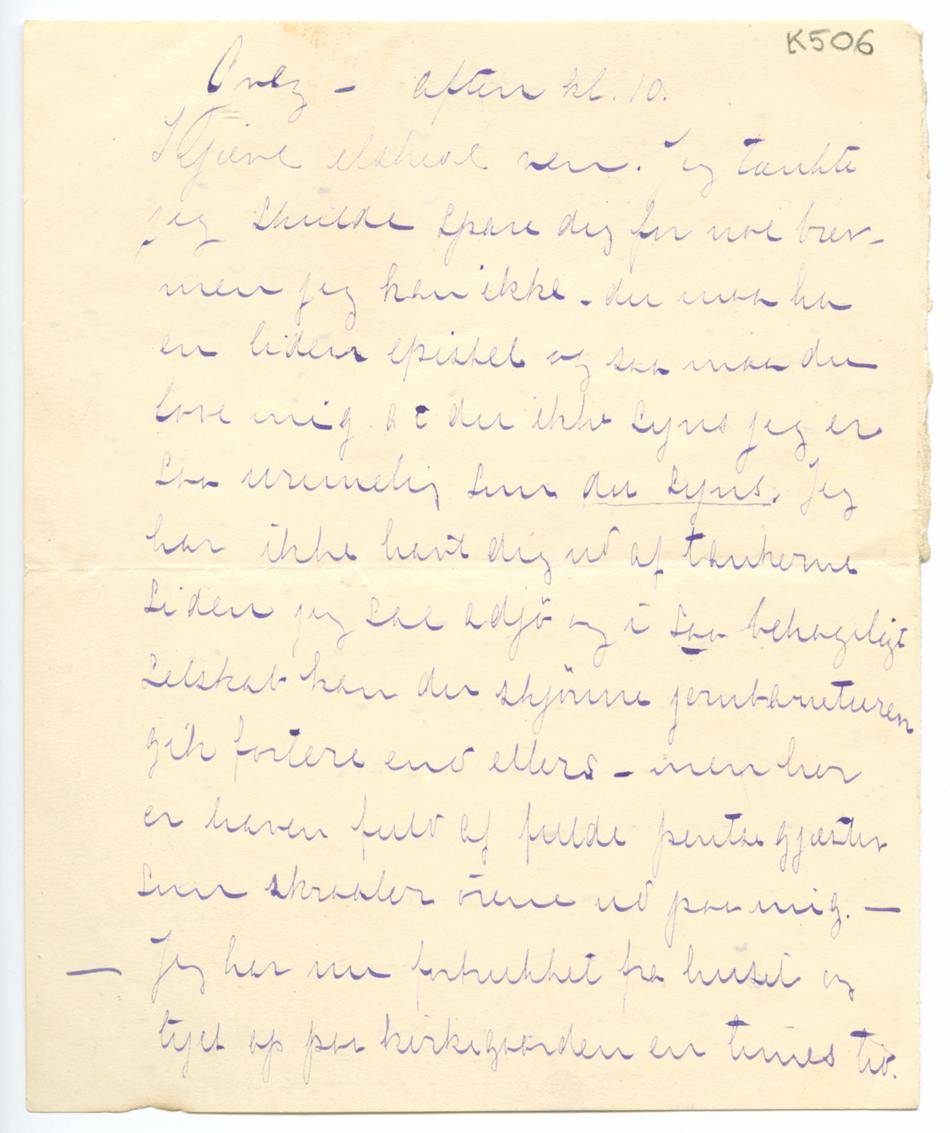 K506
Grez – aften kl. 10.
Kjære elskede ven. Jeg tænkte
jeg skulde spare dig for noe brev –
men jeg kan ikke – du maa ha
en liden epistel og saa maa du
love mig at du ikke syns jeg er
saa urimelig som du syns. Jeg
har ikke havt dig ud af tankerne
siden jeg sae adjö og i saa behageligt
selskab kan du skjönne jernbaneturen
gik fortere end ellers – men her
er haven fuld af fulde pintse gjæster
som skraaler örene ud paa mig. –
– Jeg har nu fortrukket fra huset og
tyet op paa kirkegaarden en times tid.